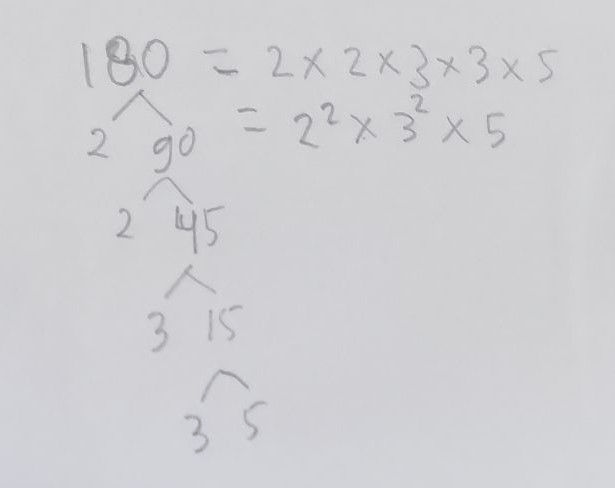 180 = 2 × 2 × 3 × 3 × 5
2 90 = 2² × 3² × 5
2 45
3 15
3 5